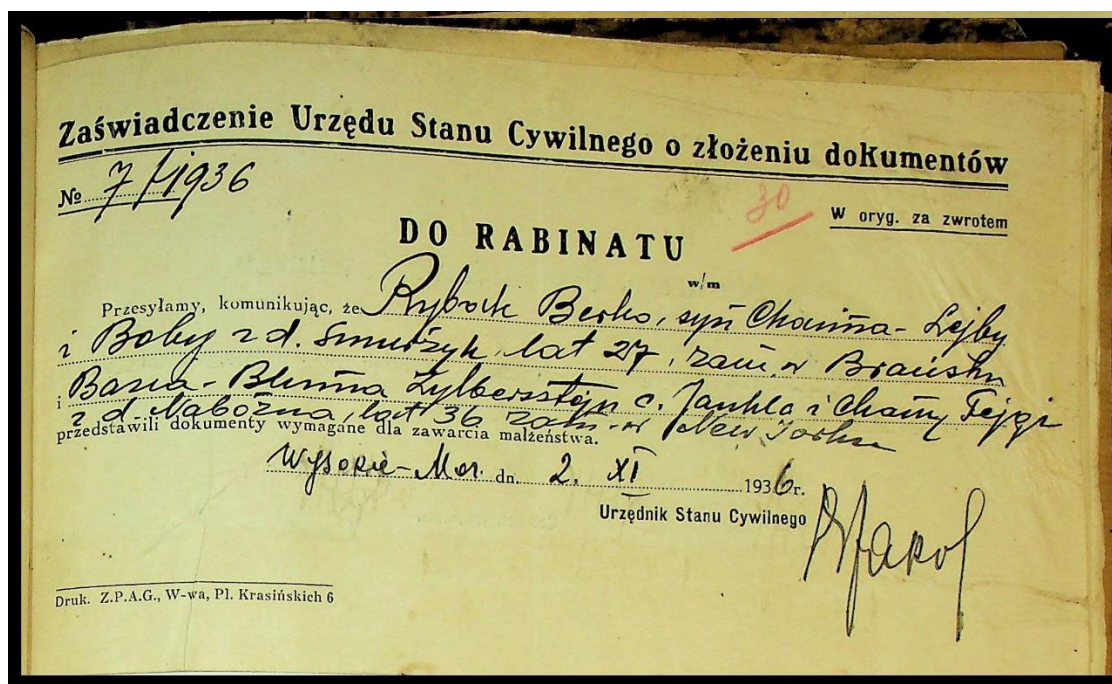 Zaświadczenie Urzędu Stanu Cywilnego o złożeniu dokumentów
№ 7/1936
30
W oryg. za zwrotem
DO RABINATU
w/m
Przesyłamy, komunikując, że Rybak Berko, syn Chaima-Lejby
i Boby z d. Smurżyk, lat 27, zam. w Brańsku
i Basia-Bluma Zylbersztejn c. Jankla i Chany Fejgi
z d. Nabożna, lat 36 zam. w New Yorku
przedstawili dokumenty wymagane dla zawarcia małżeństwa.
Wysokie-Maz. dn. 2. XI 1936 r.
Urzędnik Stanu Cywilnego
Druk. Z.P.A.G., W-wa, Pl. Krasińskich 6